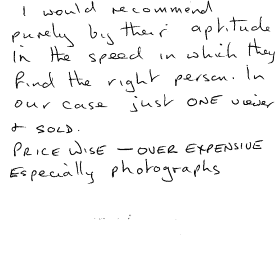 I would recommend
purely by their aptitude
in the speed in which they
find the right person. In
our case just ONE viewer
& SOLD.
PRICE WISE — OVER EXPENSIVE
Especially photographs